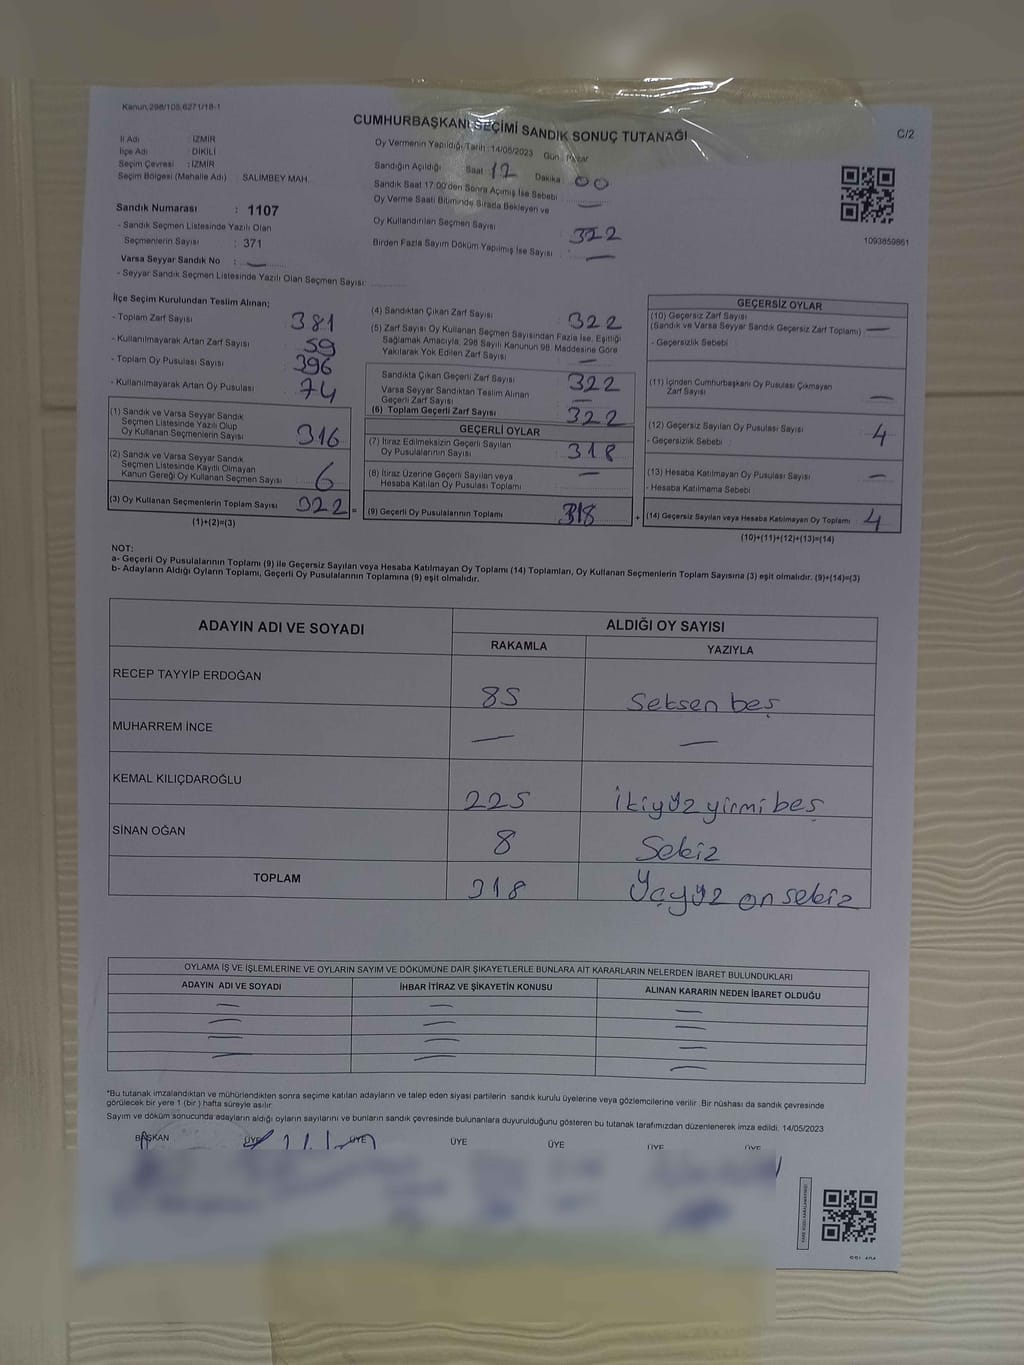 Kanun.298/105,6271/18-1
CUMHURBAŞKANI SEÇİMİ SANDIK SONUÇ TUTANAĞI
C/2
İl Adı : İZMİR
İlçe Adı : DİKİLİ
Seçim Çevresi : İZMİR
Seçim Bölgesi (Mahalle Adı) : SALIMBEY MAH.
Sandık Numarası : 1107
- Sandık Seçmen Listesinde Yazılı Olan
Seçmenlerin Sayısı : 371
Varsa Seyyar Sandık No : —
- Seyyar Sandık Seçmen Listesinde Yazılı Olan Seçmen Sayısı:
Oy Vermenin Yapıldığı Tarih :14/05/2023 Gün : Pazar
Sandığın Açıldığı Saat 17 Dakika : 00
Sandık Saat 17:00'den Sonra Açılmış İse Sebebi :
Oy Verme Saati Bitiminde Sırada Bekleyen ve —
Oy Kullandırılan Seçmen Sayısı : 322
Birden Fazla Sayım Döküm Yapılmış İse Sayısı : —
1093859861
İlçe Seçim Kurulundan Teslim Alınan;
- Toplam Zarf Sayısı : 381
- Kullanılmayarak Artan Zarf Sayısı : 59
- Toplam Oy Pusulası Sayısı : 396
- Kullanılmayarak Artan Oy Pusulası : 74
(1) Sandık ve Varsa Seyyar Sandık
Seçmen Listesinde Yazılı Olup
Oy Kullanan Seçmenlerin Sayısı : 316
(2) Sandık ve Varsa Seyyar Sandık
Seçmen Listesinde Kayıtlı Olmayan
Kanun Gereği Oy Kullanan Seçmen Sayısı : 6
(3) Oy Kullanan Seçmenlerin Toplam Sayısı : 322 =
(1)+(2)=(3)
(4) Sandıktan Çıkan Zarf Sayısı : 322
(5) Zarf Sayısı Oy Kullanan Seçmen Sayısından Fazla İse, Eşitliği
Sağlamak Amacıyla, 298 Sayılı Kanunun 98. Maddesine Göre
Yakılarak Yok Edilen Zarf Sayısı : —
Sandıkta Çıkan Geçerli Zarf Sayısı : 322
Varsa Seyyar Sandıktan Teslim Alınan
Geçerli Zarf Sayısı : —
(6) Toplam Geçerli Zarf Sayısı : 322
GEÇERLİ OYLAR
(7) İtiraz Edilmeksizin Geçerli Sayılan
Oy Pusulalarının Sayısı : 318
(8) İtiraz Üzerine Geçerli Sayılan veya
Hesaba Katılan Oy Pusulası Toplamı : —
(9) Geçerli Oy Pusulalarının Toplamı : 318 +
GEÇERSİZ OYLAR
(10) Geçersiz Zarf Sayısı
(Sandık ve Varsa Seyyar Sandık Geçersiz Zarf Toplamı) : —
- Geçersizlik Sebebi :
(11) İçinden Cumhurbaşkanı Oy Pusulası Çıkmayan
Zarf Sayısı : —
(12) Geçersiz Sayılan Oy Pusulası Sayısı : 4
- Geçersizlik Sebebi :
(13) Hesaba Katılmayan Oy Pusulası Sayısı : —
- Hesaba Katılmama Sebebi :
(14) Geçersiz Sayılan veya Hesaba Katılmayan Oy Toplamı : 4
(10)+(11)+(12)+(13)=(14)
NOT:
a- Geçerli Oy Pusulalarının Toplamı (9) ile Geçersiz Sayılan veya Hesaba Katılmayan Oy Toplamı (14) Toplamları, Oy Kullanan Seçmenlerin Toplam Sayısına (3) eşit olmalıdır. (9)+(14)=(3)
b- Adayların Aldığı Oyların Toplamı, Geçerli Oy Pusulalarının Toplamına (9) eşit olmalıdır.
ADAYIN ADI VE SOYADI
ALDIĞI OY SAYISI
RAKAMLA YAZIYLA
RECEP TAYYİP ERDOĞAN 85 Seksen beş
MUHARREM İNCE — —
KEMAL KILIÇDAROĞLU 225 İkiyüz yirmi beş
SİNAN OĞAN 8 Sekiz
TOPLAM 318 Üçyüz on sekiz
OYLAMA İŞ VE İŞLEMLERİNE VE OYLARIN SAYIM VE DÖKÜMÜNE DAİR ŞİKAYETLERLE BUNLARA AİT KARARLARIN NELERDEN İBARET BULUNDUKLARI
ADAYIN ADI VE SOYADI İHBAR İTİRAZ VE ŞİKAYETİN KONUSU ALINAN KARARIN NEDEN İBARET OLDUĞU
— — —
— — —
— — —
— — —
*Bu tutanak imzalandıktan ve mühürlendikten sonra seçime katılan adayların ve talep eden siyasi partilerin sandık kurulu üyelerine veya gözlemcilerine verilir. Bir nüshası da sandık çevresinde
görülecek bir yere 1 (bir ) hafta süreyle asılır.
Sayım ve döküm sonucunda adayların aldığı oyların sayılarını ve bunların sandık çevresinde bulunanlara duyurulduğunu gösteren bu tutanak tarafımızdan düzenlenerek imza edildi. 14/05/2023
BAŞKAN ÜYE ÜYE ÜYE ÜYE ÜYE ÜYE